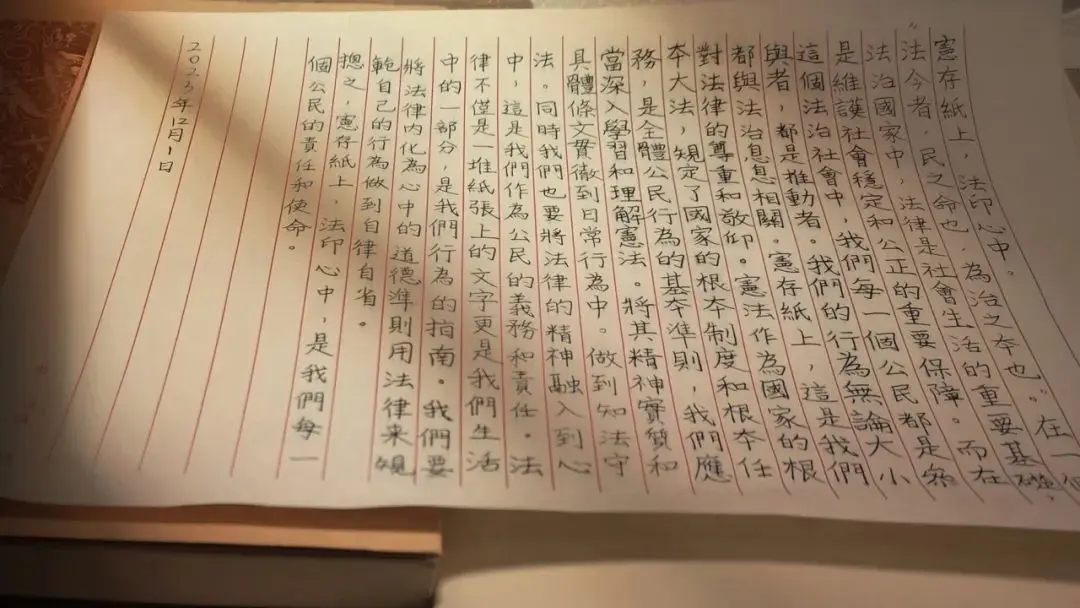 憲存紙上，法印心中。
“法令者，民之命也，為治之本也。”在一個
法治國家中，法律是社會生活的重要基礎，
是維護社會穩定和公正的重要保障。而在
這個法治社會中，我們每一個公民都是參
與者，都是推動者。我們的行為無論大小
都與法治息息相關。憲存紙上，這是我們
對法律的尊重和敬仰。憲法作為國家的根
本大法，規定了國家的根本制度和根本任
務，是全體公民行為的基本準則，我們應
當深入學習和理解憲法。將其精神實質和
具體條文貫徹到日常行為中。做到知法守
法。同時我們也要將法律的精神融入到心
中，這是我們作為公民的義務和責任。法
律不僅是一堆紙張上的文字更是我們生活
中的一部分，是我們行為的指南。我們要
將法律內化為心中的道德準則用法律來規
範自己的行為做到自律自省。
總之，憲存紙上，法印心中，是我們每一
個公民的責任和使命。
2023年12月1日